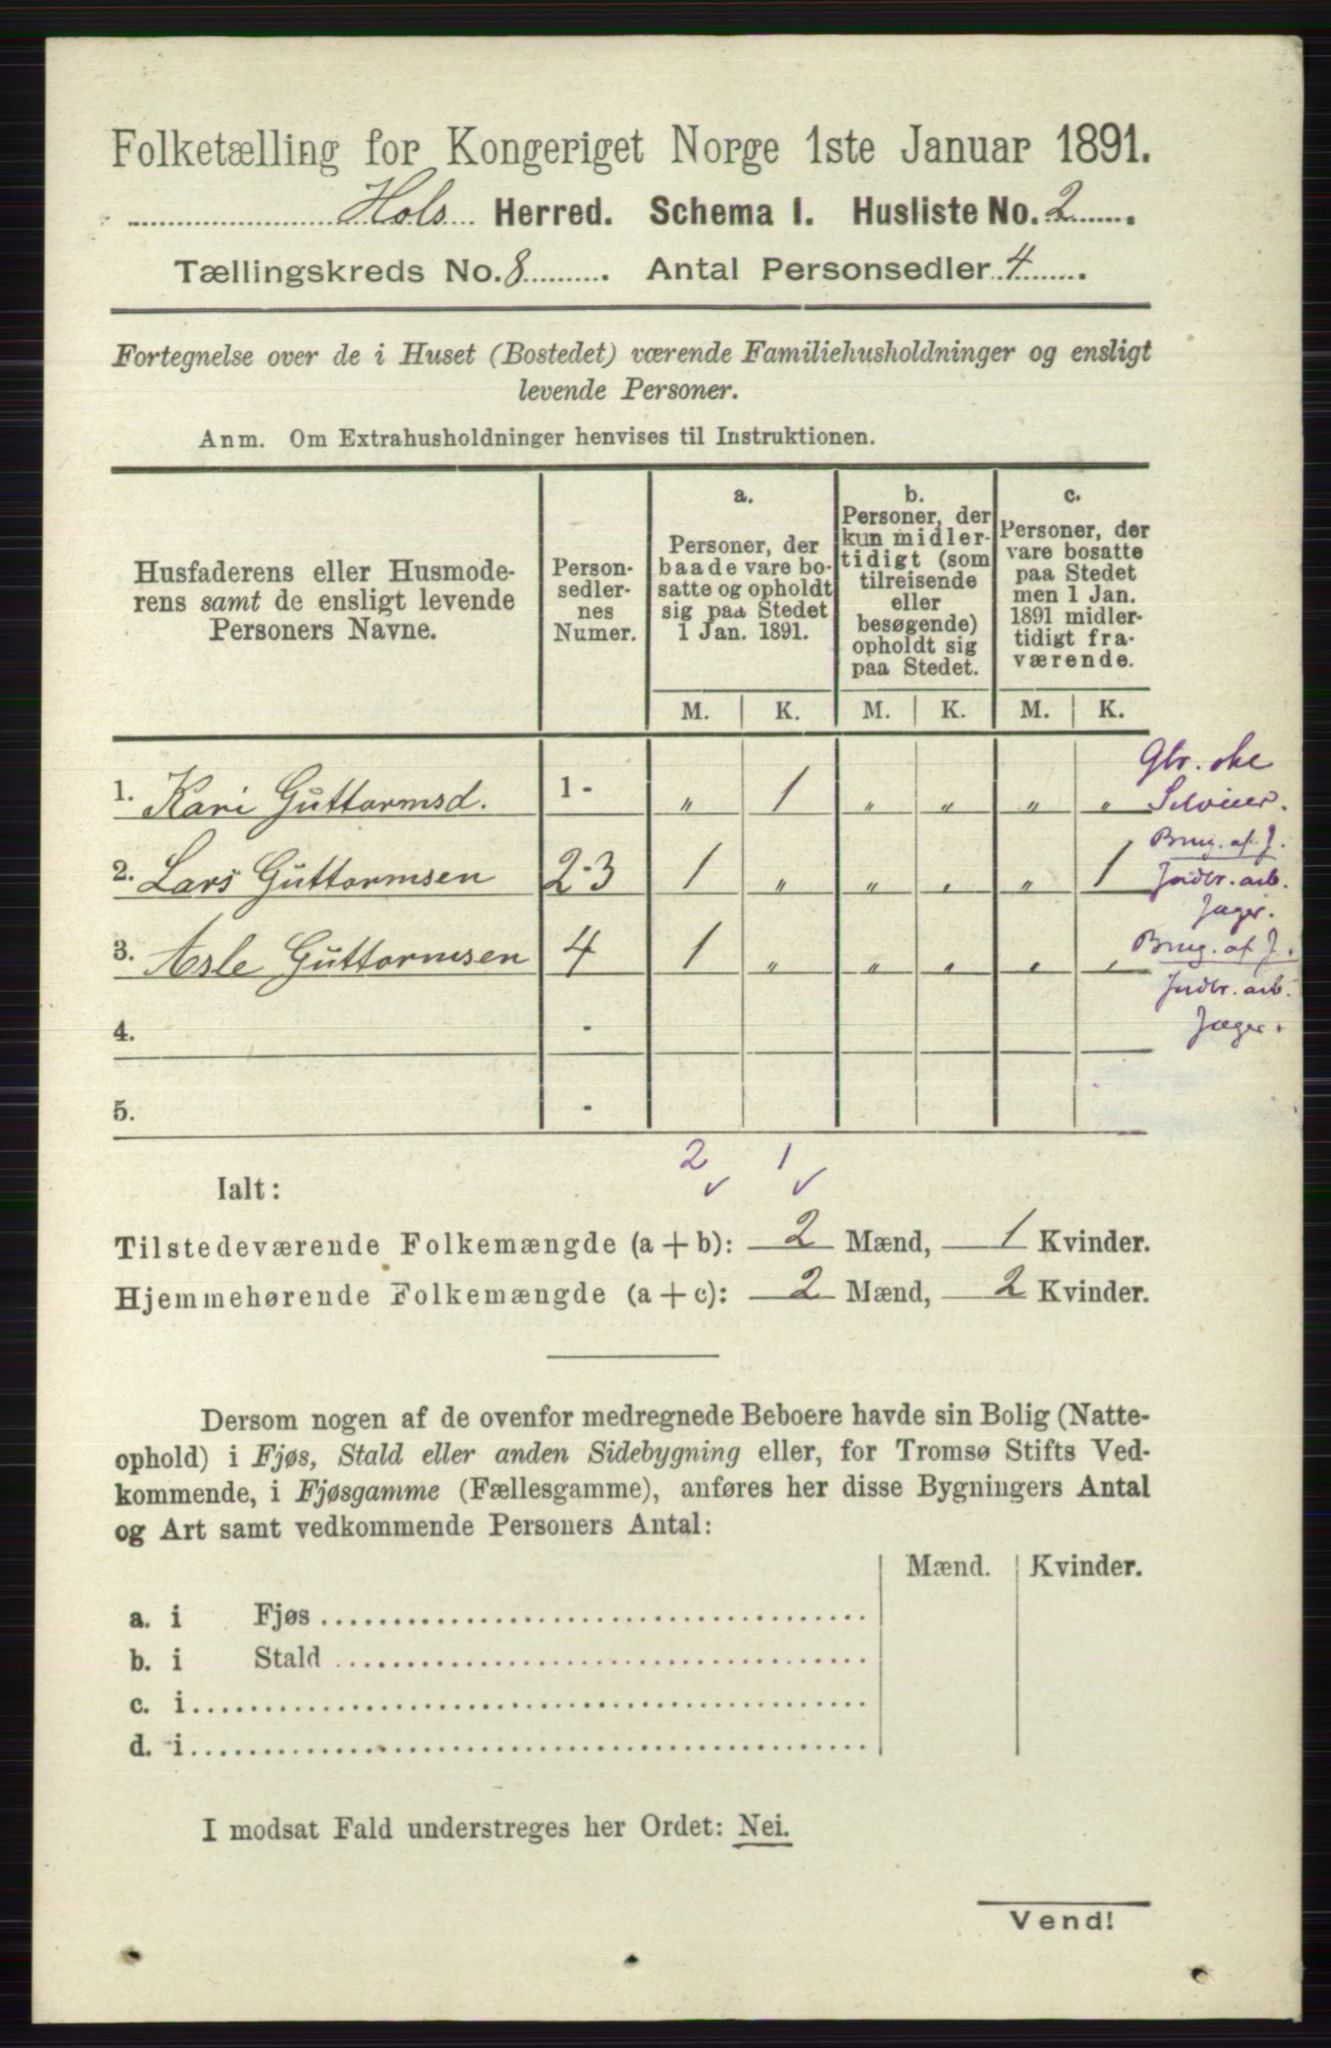 Folketælling for Kongeriget Norge 1ste Januar 1891.
Hols Herred. Schema I. Husliste No. 2
Tællingskreds No. 8 Antal Personsedler 4
Fortegnelse over de i Huset (Bostedet) værende Familiehusholdninger og ensligt
levende Personer.
Anm. Om Extrahusholdninger henvises til Instruktionen.
Husfaderens eller Husmode-
rens samt de ensligt levende
Personers Navne.
Person-
sedler-
nes
Numer.
a.
Personer, der
baade vare bo-
satte og opholdt
sig paa Stedet
1 Jan. 1891.
b.
Personer, der
kun midler-
tidigt (som
tilreisende
eller
besøgende)
opholdt sig
paa Stedet.
c.
Personer, der
vare bosatte
paa Stedet
men 1 Jan.
1891 midler-
tidigt fra-
værende.
M. K. M. K. M. K.
Gbr.
1. Kari Guttormsd. 1 - " 1 " " " "
Brug. af J.
2. Lars Guttormsen 2-3 1 " " " " 1 Indbr. arb.
Jæger.
3. Asle Guttormsen 4 1 " " " " " Brug. af J.
Indbr. arb.
4. - Jæger.
5. -
2 1
Ialt: ✓ ✓
Tilstedeværende Folkemængde (a + b): 2 Mænd, 1 Kvinder.
Hjemmehørende Folkemængde (a + c): 2 Mænd, 2 Kvinder.
Dersom nogen af de ovenfor medregnede Beboere havde sin Bolig (Natte-
ophold) i Fjøs, Stald eller anden Sidebygning eller, for Tromsø Stifts Ved-
kommende, i Fjøsgamme (Fællesgamme), anføres her disse Bygningers Antal
og Art samt vedkommende Personers Antal:
Mænd. Kvinder.
a. i Fjøs
b. i Stald
c. i
d. i
I modsat Fald understreges her Ordet: Nei.
Vend!